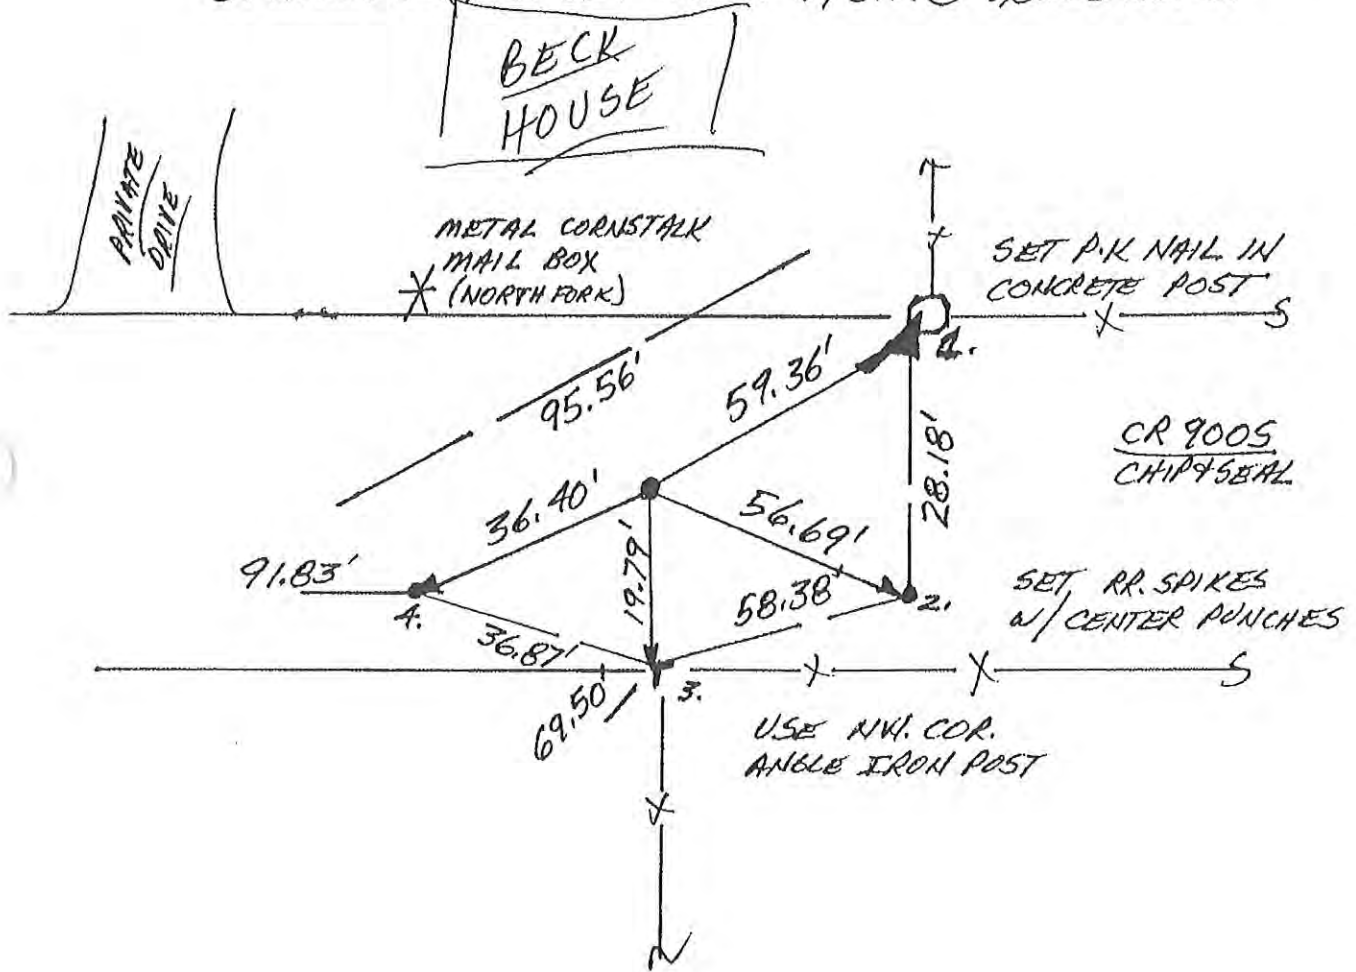 BECK
HOUSE
PRIVATE
DRIVE
METAL CORNSTALK
MAIL BOX
(NORTH FORK)
SET P.K NAIL IN
CONCRETE POST
1.
95.56'
59.36'
28.18'
CR 900S
CHIP & SEAL
36.40'
56.69'
19.79'
91.83'
4.
58.38'
2.
SET RR. SPIKES
W/ CENTER PUNCHES
36.87'
69.50'
3.
USE NW. COR.
ANGLE IRON POST